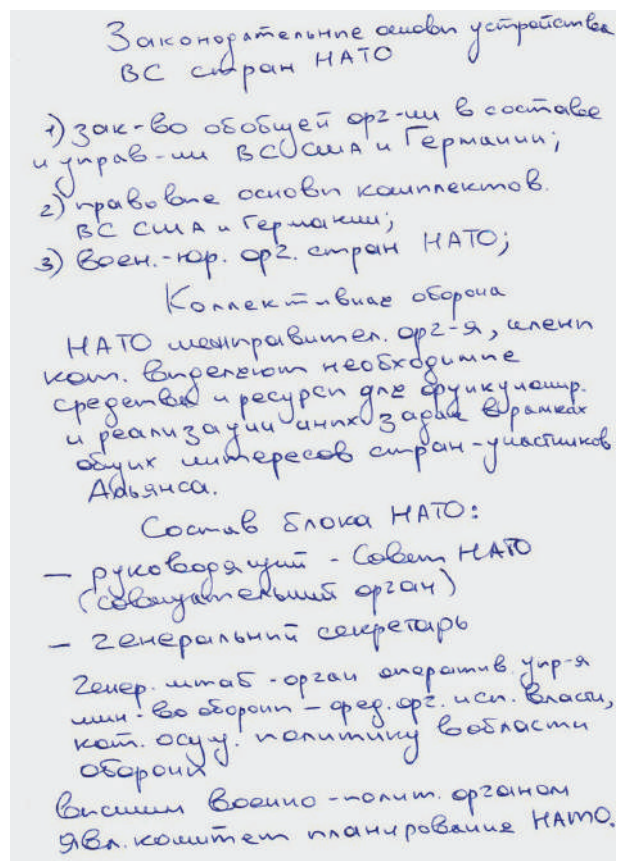 Законодательные основы устройства
ВС стран НАТО
1) зак-во об общей орг-ии в составе
и управ-ии ВС США и Германии;
2) правовые основы комплектов.
ВС США и Германии;
3) воен.-юр. орг. стран НАТО;
Коллективная оборона
НАТО межправител. орг-я, члены
кот. выделяют необходимые
средства и ресурсы для функциониp.
и реализации иных задач в рамках
общих интересов стран-участников
Альянса.
Состав блока НАТО:
– руководящий - Совет НАТО
(совещательный орган)
– генеральный секретарь
Генер. штаб - орган оператив. упр-я
мин-во обороны – фед. орг. исп. власти,
кот. осущ. политику в области
обороны
Высшим военно-полит. органом
явл. комитет планирования НАТО.